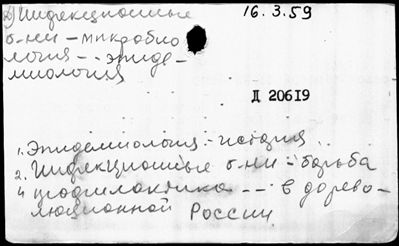 2) Инфекционные 16.3.59
б-ни – микробио
логия – эпиде-
миология
Д 20619
1. Эпидемиология – история
2. Инфекционные б-ни – борьба
и профилактика – в дорево-
люционной России